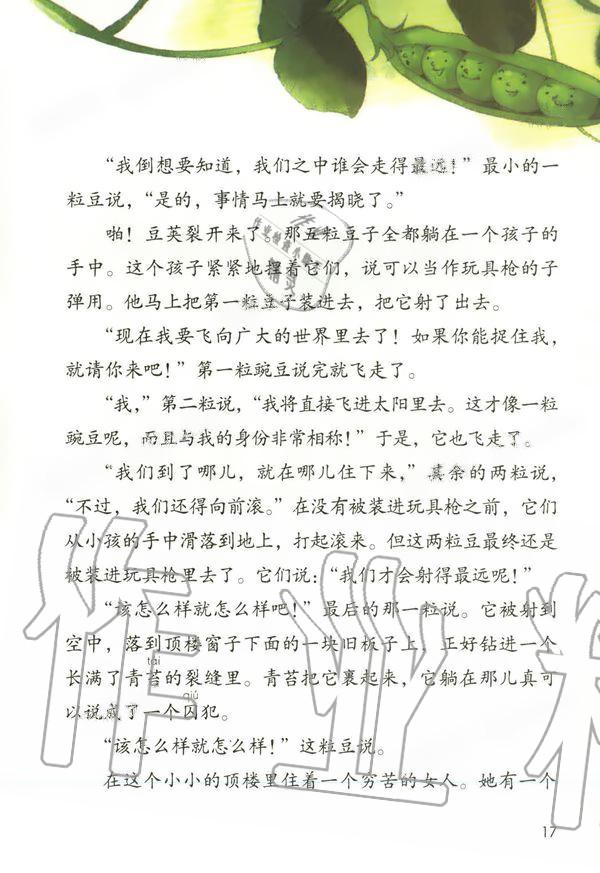 “我倒想要知道，我们之中谁会走得最远！”最小的一
粒豆说，“是的，事情马上就要揭晓了。”
啪！豆荚裂开来了。那五粒豆子全都躺在一个孩子的
手中。这个孩子紧紧地捏着它们，说可以当作玩具枪的子
弹用。他马上把第一粒豆子装进去，把它射了出去。
“现在我要飞向广大的世界里去了！如果你能捉住我，
就请你来吧！”第一粒豌豆说完就飞走了。
“我，”第二粒说，“我将直接飞进太阳里去。这才像一粒
豌豆呢，而且与我的身份非常相称！”于是，它也飞走了。
“我们到了哪儿，就在哪儿住下来，”其余的两粒说，
“不过，我们还得向前滚。”在没有被装进玩具枪之前，它们
从小孩的手中滑落到地上，打起滚来。但这两粒豆最终还是
被装进玩具枪里去了。它们说：“我们才会射得最远呢！”
“该怎么样就怎么样吧！”最后的那一粒说。它被射到
空中，落到顶楼窗子下面的一块旧板子上，正好钻进一个
tái
长满了青苔的裂缝里。青苔把它裹起来，它躺在那儿真可
qiú
以说成了一个囚犯。
“该怎么样就怎么样！”这粒豆说。
在这个小小的顶楼里住着一个穷苦的女人。她有一个
17
作业精